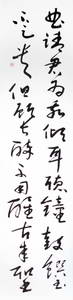 曲請君為我傾耳聽鐘鼓饌玉
不足貴但願長醉不用醒古來聖